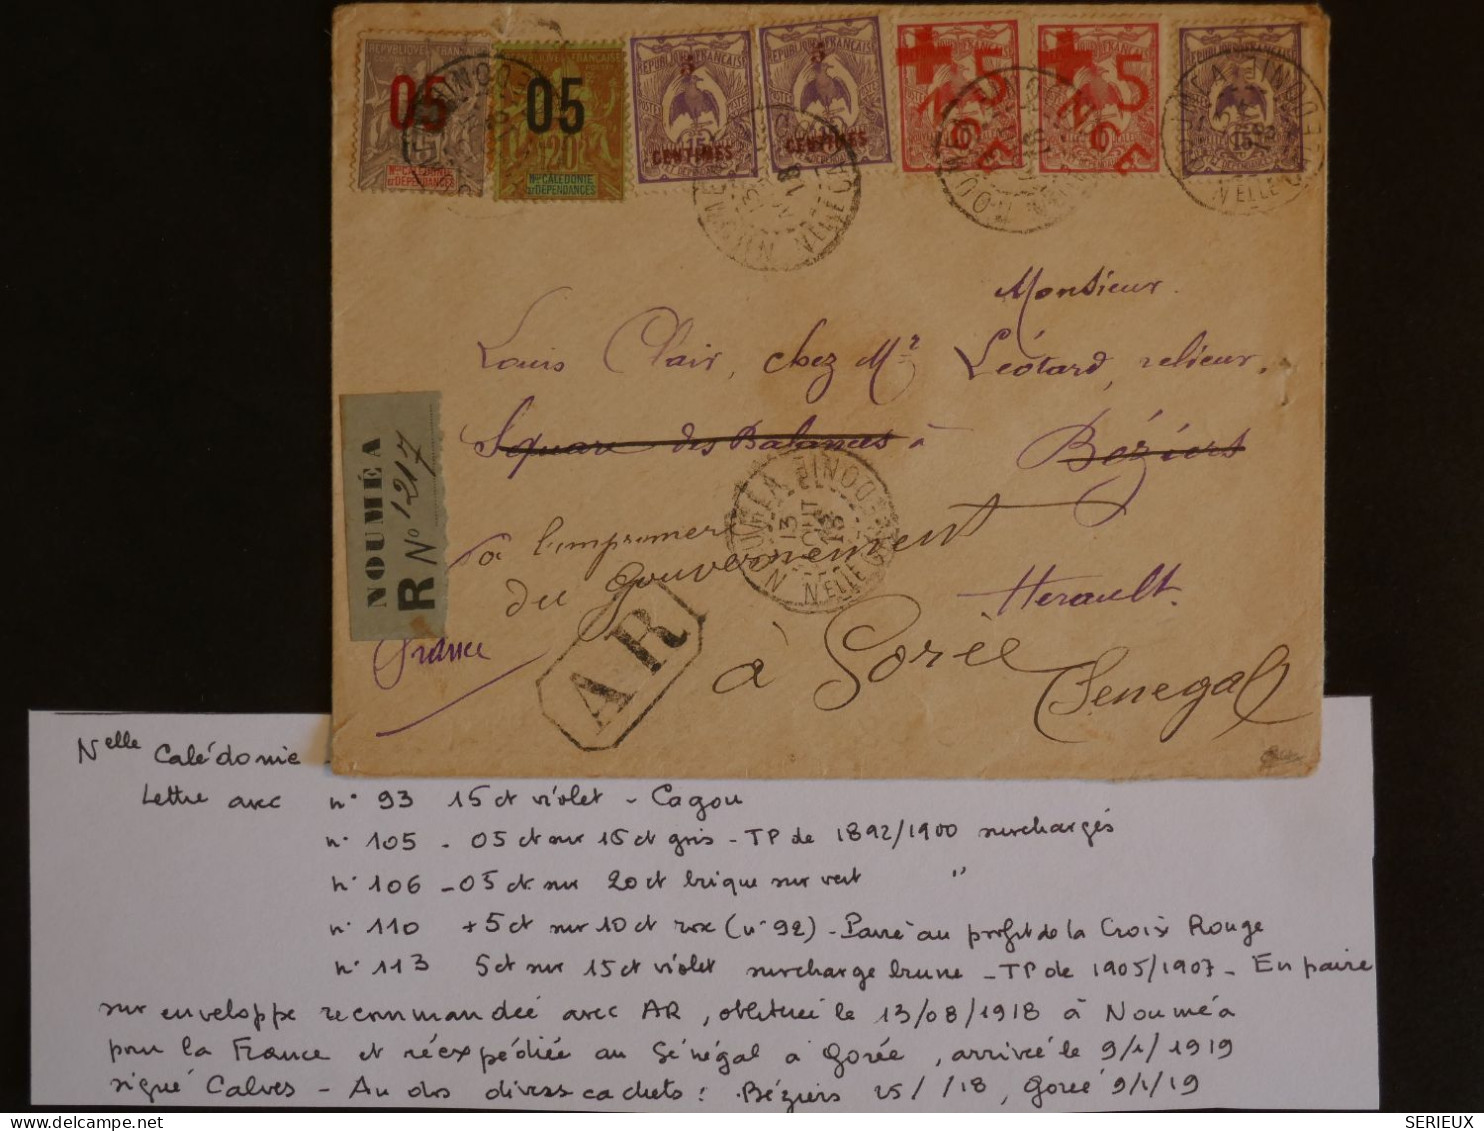 REPUBLIQUE FRANCAISE
05
05
20
Nlle CALÉDONIE
ET DÉPENDANCES
5 CENTIMES
5 CENTIMES
REPUBLIQUE FRANCAISE
15
POSTES
+ 5
NCE
+ 5
NCE
NOUMÉA
Nelle CALEDONIE
Monsieur
Louis Clair, chez Mr Léotard, relieur,
Square des Balances à Béziers
NOUMÉA
R No 1217
NOUMEA
13 AOUT 18
Nelle CALEDONIE
à l'imprimerie
du Gouvernement
Herault.
France
AR
à Gorée
Senegal
Nelle Calédonie
Lettre avec n° 93 15 ct violet - Cagou
n° 105 - 05 ct sur 15 ct gris - TP de 1892/1900 surchargés
n° 106 - 05 ct sur 20 ct brique sur vert "
n° 110 +5 ct sur 10 ct rose (n° 92) - Paire au profit de la Croix Rouge
n° 113 5 ct sur 15 ct violet surcharge brune - TP de 1905/1907 - En paire
sur enveloppe recommandée avec AR, oblitérée le 13/08/1918 à Nouméa
pour la France et réexpédiée au Sénégal à Gorée, arrivée le 9/1/1919
signé Calves - Au dos divers cachets : Béziers 25/ /18, Gorée 9/1/19
SERIEUX